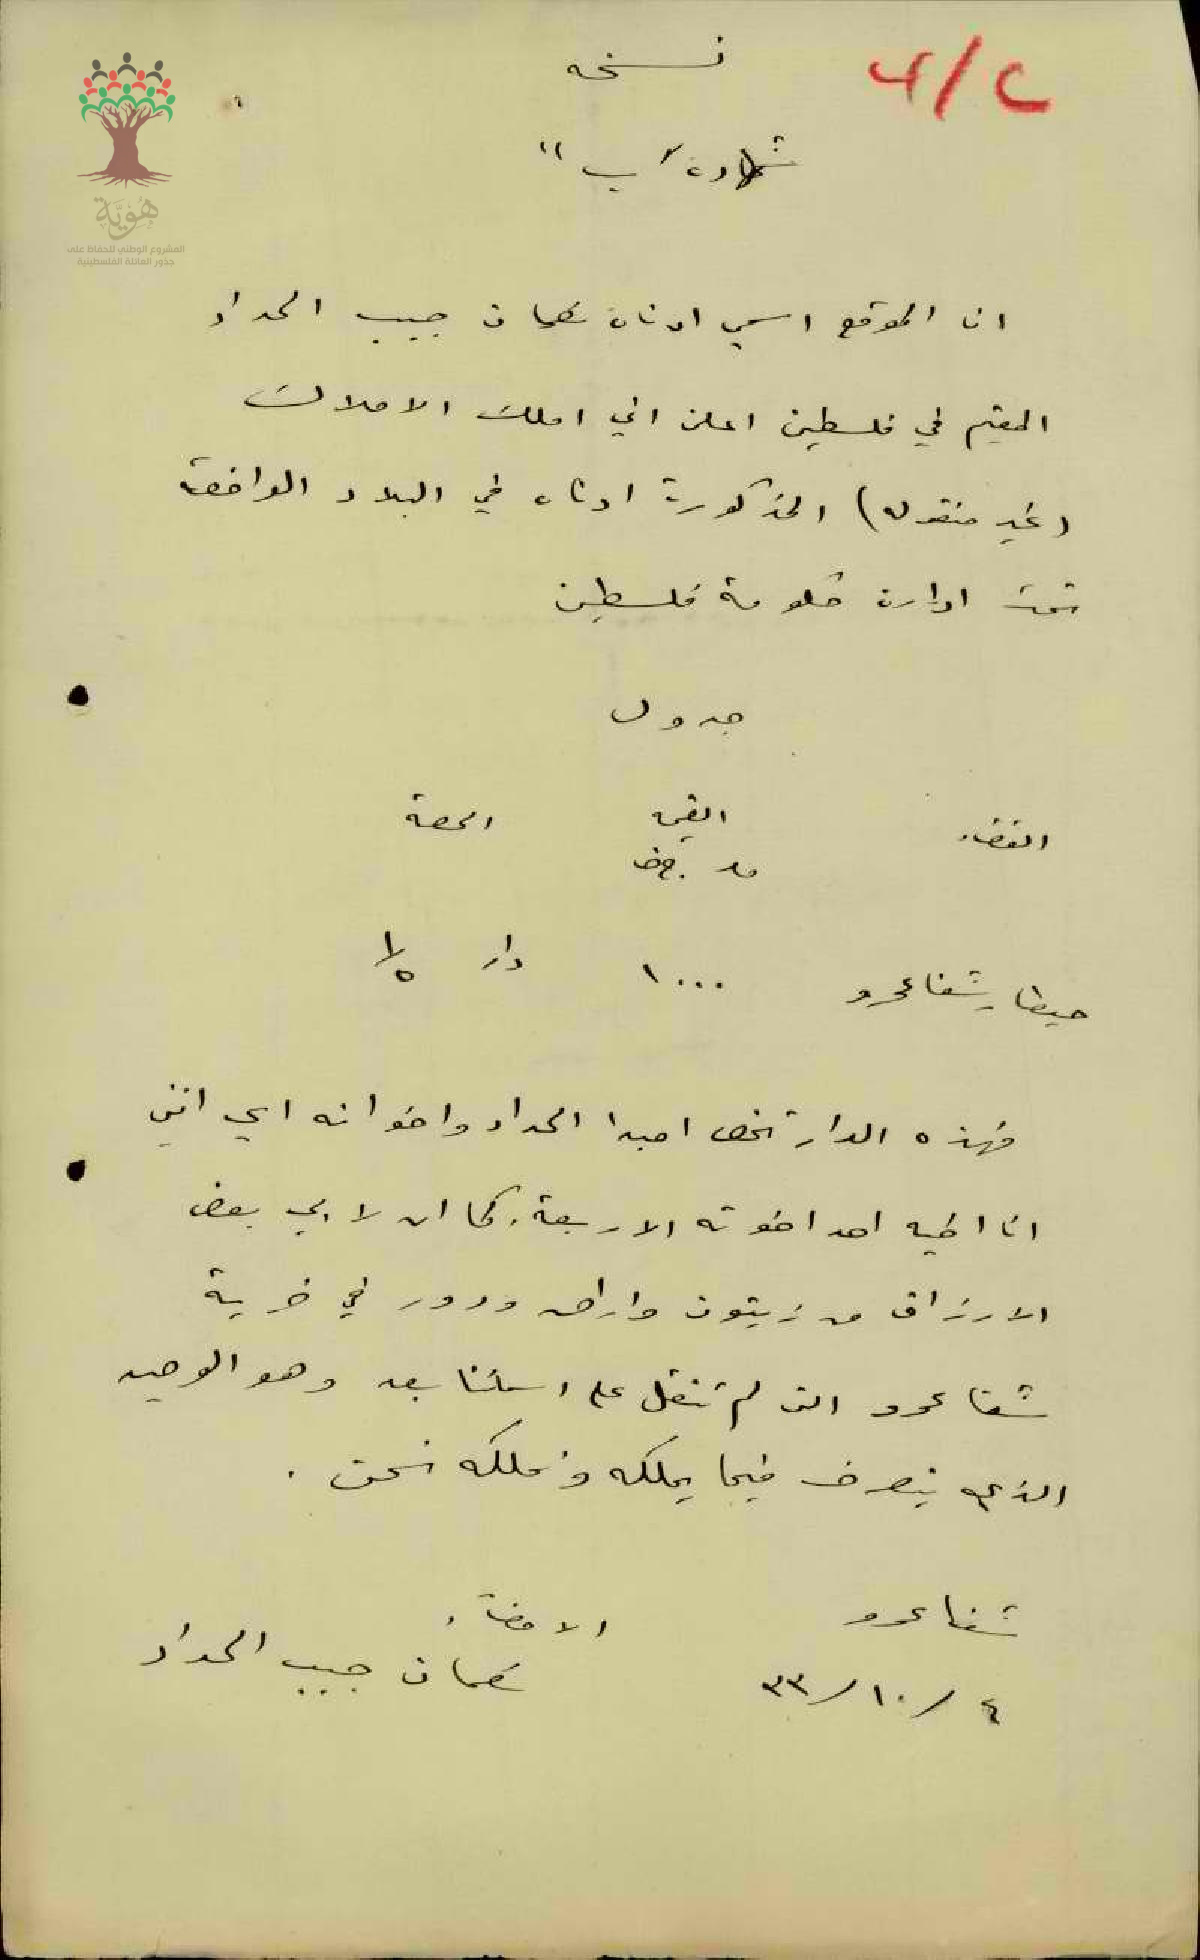 نسخه
٢/٤
شهادة "ب"
هُوِيَّة
المشروع الوطني للحفاظ على
جذور العائلة الفلسطينية
انا الموقع اسمي ادناه نعمان حبيب الحداد
المقيم في فلسطين اعلن اني املك الاملاك
(غير منقوله) المذكورة ادناه في البلاد الواقعة
تحت ادارة حكومة فلسطين
جدول
القضاء القيمه الحصة
حيفا، شفاعمرو ١٠٠٠ دار ١/٥
فهذه الدار تخص الحداد واخوانه اي انني
انا اخيه احد اخوته الاربعة. كما ان لابي بعض
الارزاق من زيتون واراض ودور في قرية
شفاعمرو التي لم تنقل على اسمائنا بعد وهو الوحيد
الذي يتصرف فيما يملكه ونملكه نحن .
شفاعمرو الامضاء
٤/١٠/٣٣ نعمان حبيب الحداد